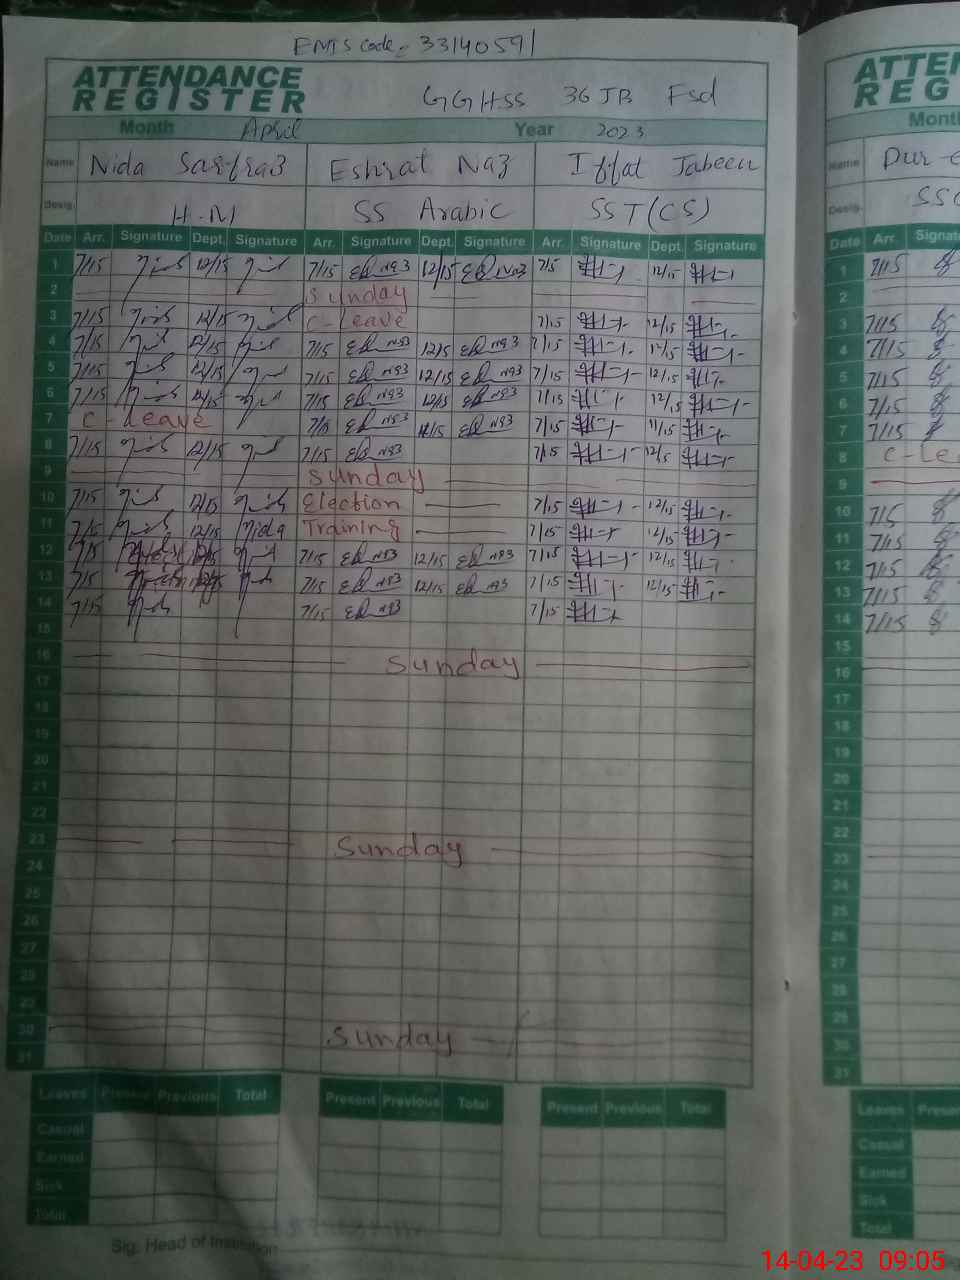 EMIS code - 33140591
ATTENDANCE REGISTER
GGHSS 36 JB Fsd
Month April Year 2023
Name Nida Sarfraz Eshrat Naz Iffat Jabeen
Desig. H.M SS Arabic SST (CS)
Date Arr. Signature Dept. Signature Arr. Signature Dept. Signature Arr. Signature Dept. Signature
1 7/15 12/15 7/15 12/15 7/15 12/15
2 Sunday
3 7/15 12/15 C-Leave 7/15 12/15
4 7/15 12/15 7/15 12/15 7/15 12/15
5 7/15 12/15 7/15 12/15 7/15 12/15
6 7/15 12/15 7/15 12/15 7/15 12/15
7 C-Leave 7/15 12/15 7/15 11/15
8 7/15 12/15 7/15 7/15 12/15
9 Sunday
10 7/15 12/15 Election 7/15 12/15
11 7/15 12/15 Nida Training 7/15 12/15
12 7/15 7/15 12/15 7/15 12/15
13 7/15 7/15 12/15 7/15 12/15
14 7/15 7/15 7/15
15
16 Sunday
17
18
19
20
21
22
23 Sunday
24
25
26
27
28
29
30 Sunday
31
Leaves Present Previous Total Present Previous Total Present Previous Total
Casual
Earned
Sick
Total
Sig. Head of Institution
ATTEN
REG
Month
Name Dur-e
Desig. SS
Date Arr. Signatu
1 7/15
2
3 7/15
4 7/15
5 7/15
6 7/15
7 7/15
8 C-Le
9
10 7/15
11 7/15
12 7/15
13 7/15
14 7/15
15
16
17
18
19
20
21
22
23
24
25
26
27
28
29
30
31
Leaves Presen
Casual
Earned
Sick
Total
14-04-23 09:05